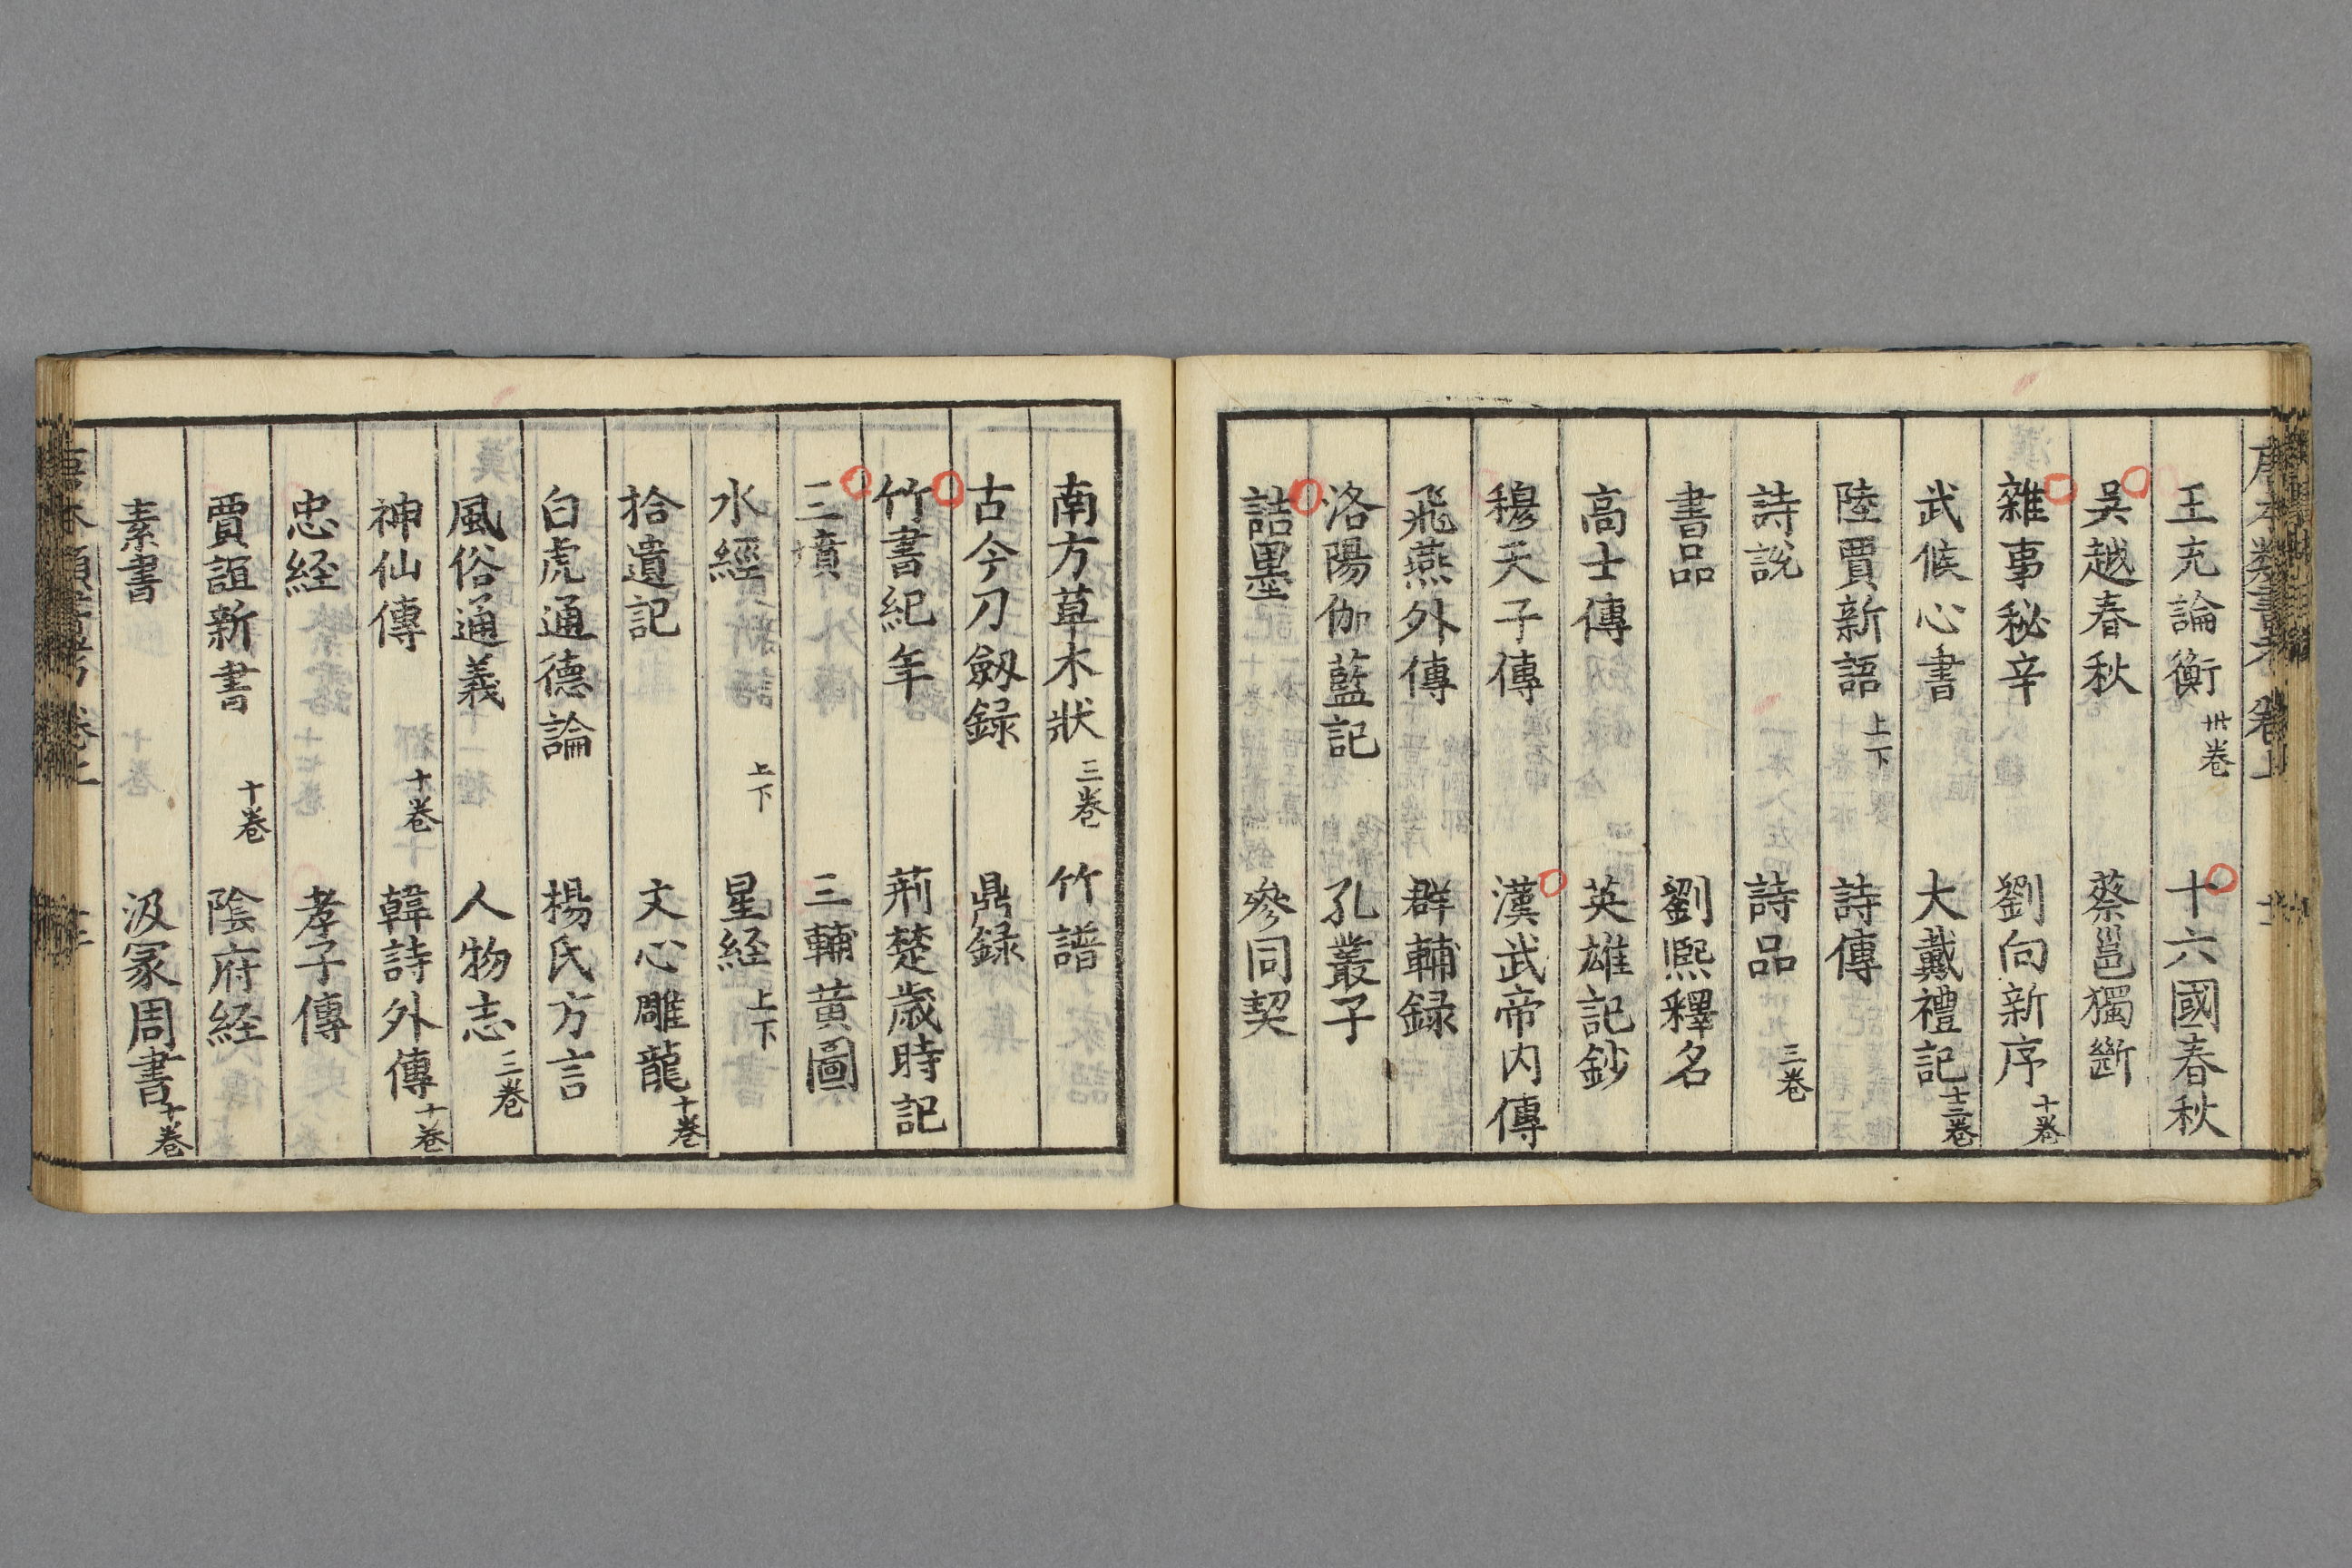 唐本類書考 卷上
王充論衡 卅卷 十六國春秋
吳越春秋 蔡邕獨斷
雜事秘辛 劉向新序 十卷
武候心書 大戴禮記 十三卷
陸賈新語 上下 詩傳
詩説 詩品 三卷
書品 劉熙釋名
高士傳 英雄記鈔
穆天子傳 漢武帝内傳
飛燕外傳 群輔録
洛陽伽藍記 孔叢子
詰墨 參同契
南方草木狀 三卷 竹譜
古今刀劔録 鼎録
竹書紀年 荊楚歳時記
三墳 三輔黄圖
水經 上下 星経 上下
拾遺記 文心雕龍 十卷
白虎通德論 楊氏方言
風俗通義 人物志 三卷
神仙傳 十卷 韓詩外傳 十卷
忠経 孝子傳
賈誼新書 十卷 陰府経
素書 汲冢周書 十卷